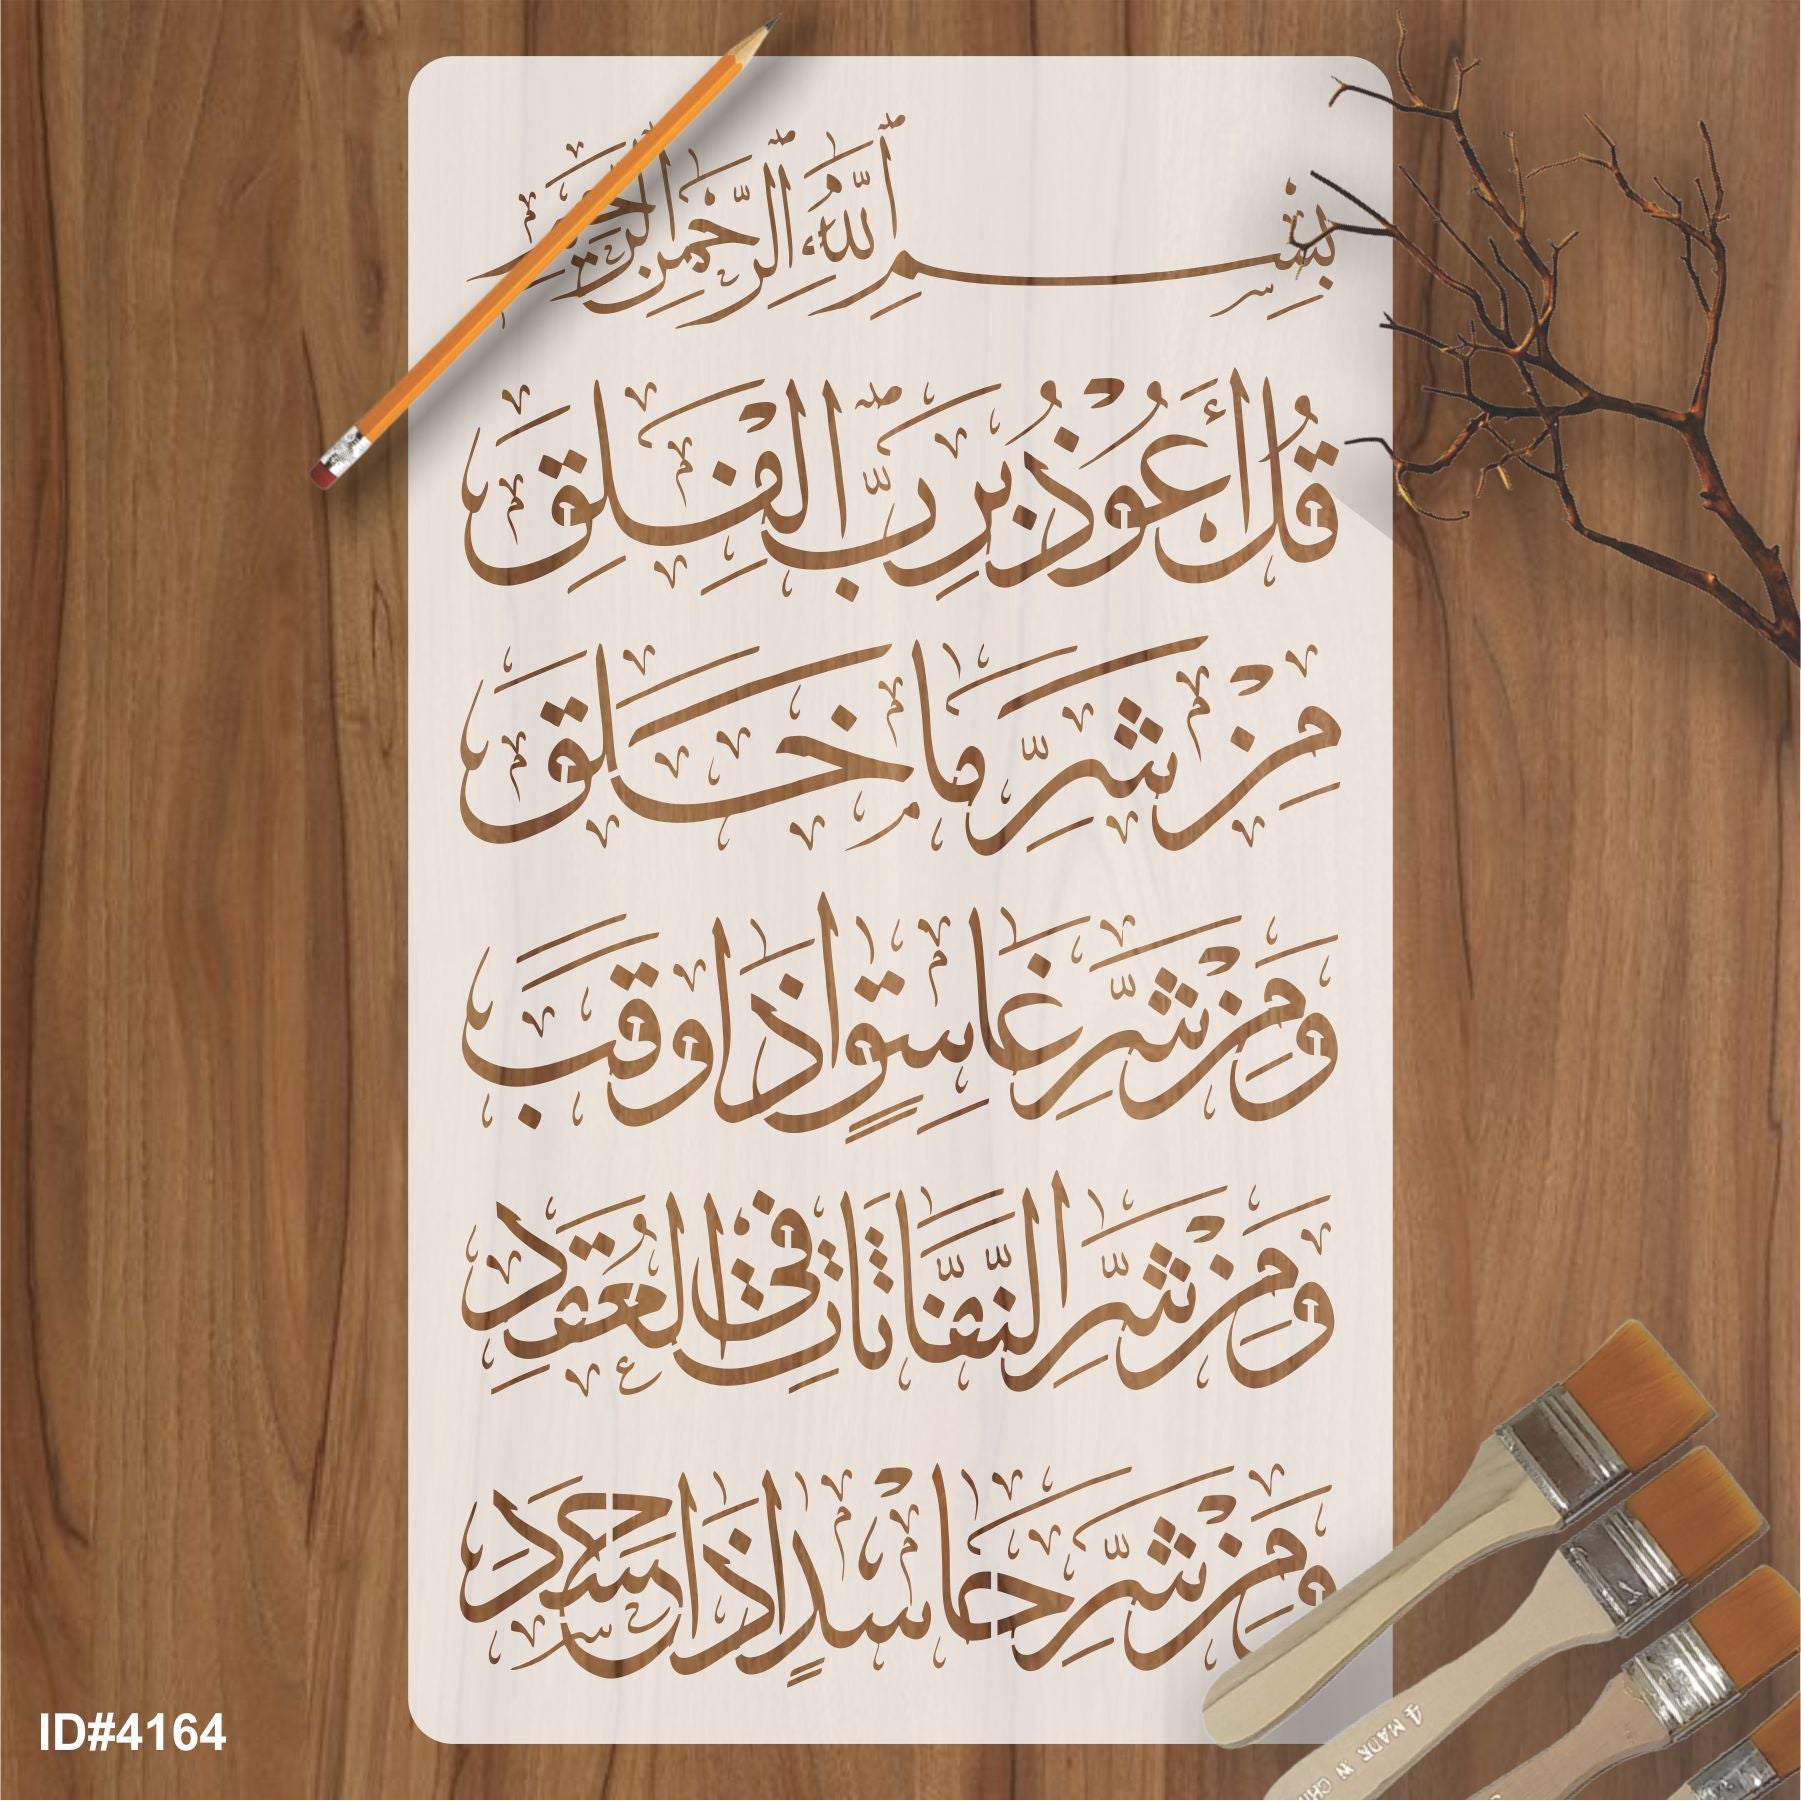 بِسْمِ ٱللَّهِ ٱلرَّحْمَٰنِ ٱلرَّحِيمِ
قُلْ أَعُوذُ بِرَبِّ ٱلْفَلَقِ
مِنْ شَرِّ مَا خَلَقَ
وَمِنْ شَرِّ غَاسِقٍ إِذَا وَقَبَ
وَمِنْ شَرِّ النَّفَّاثَاتِ فِي الْعُقَدِ
وَمِنْ شَرِّ حَاسِدٍ إِذَا حَسَدَ
ID#4164
4 MADE IN CHI